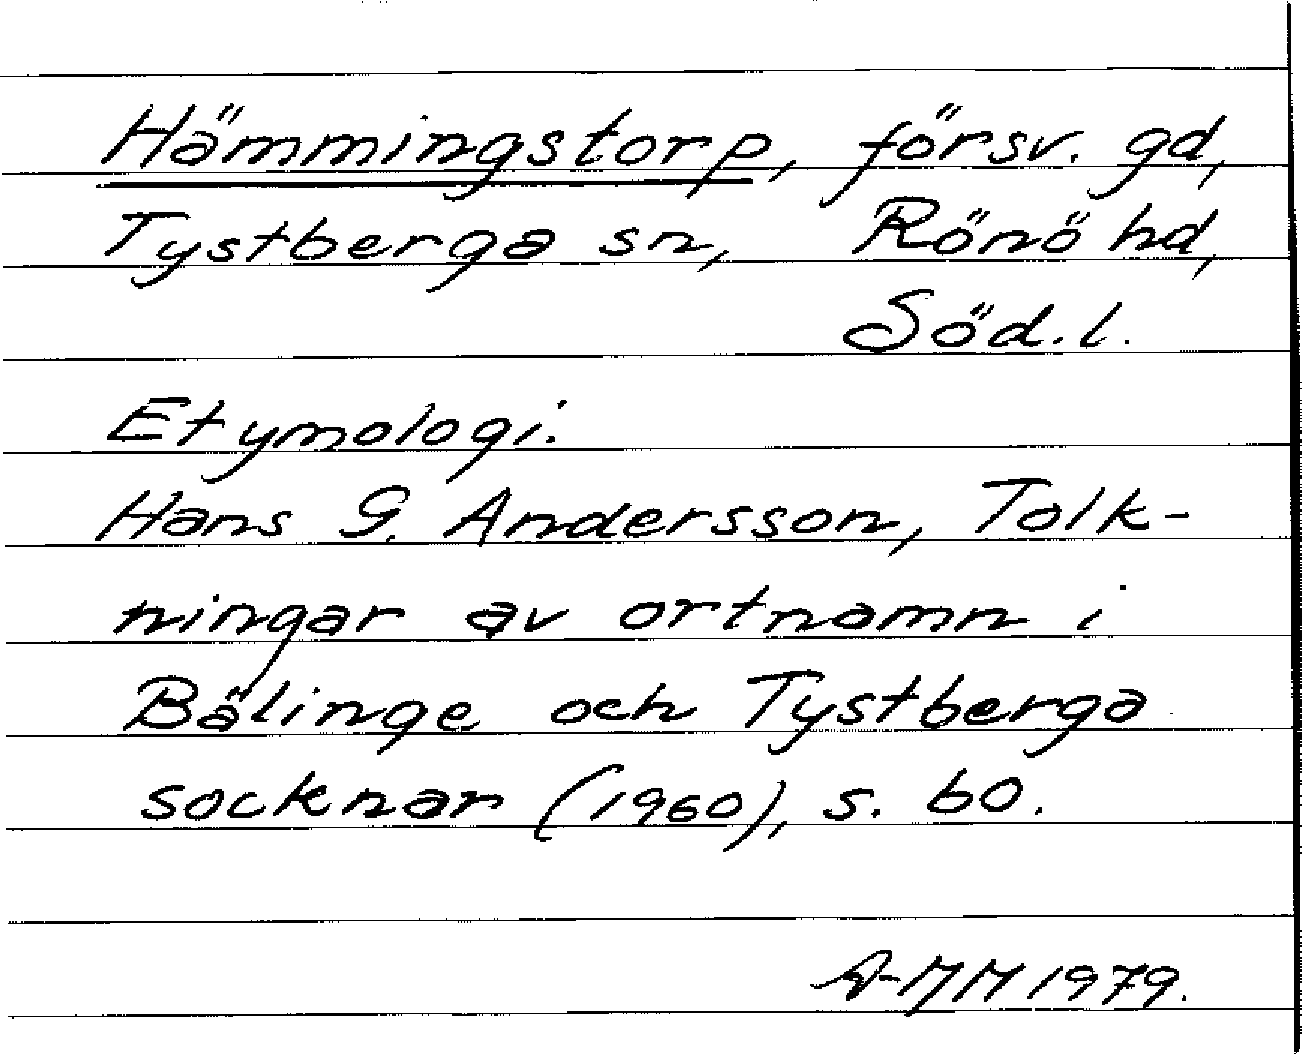 Hämmingstorp, försv. gd,
Tystberga sn, Rönö hd,
Söd.l.
Etymologi.
Hans G. Andersson, Tolk-
ningar av ortnamn i
Bälinge och Tystberga
socknar (1960), s. 60.
A-MM 1979.